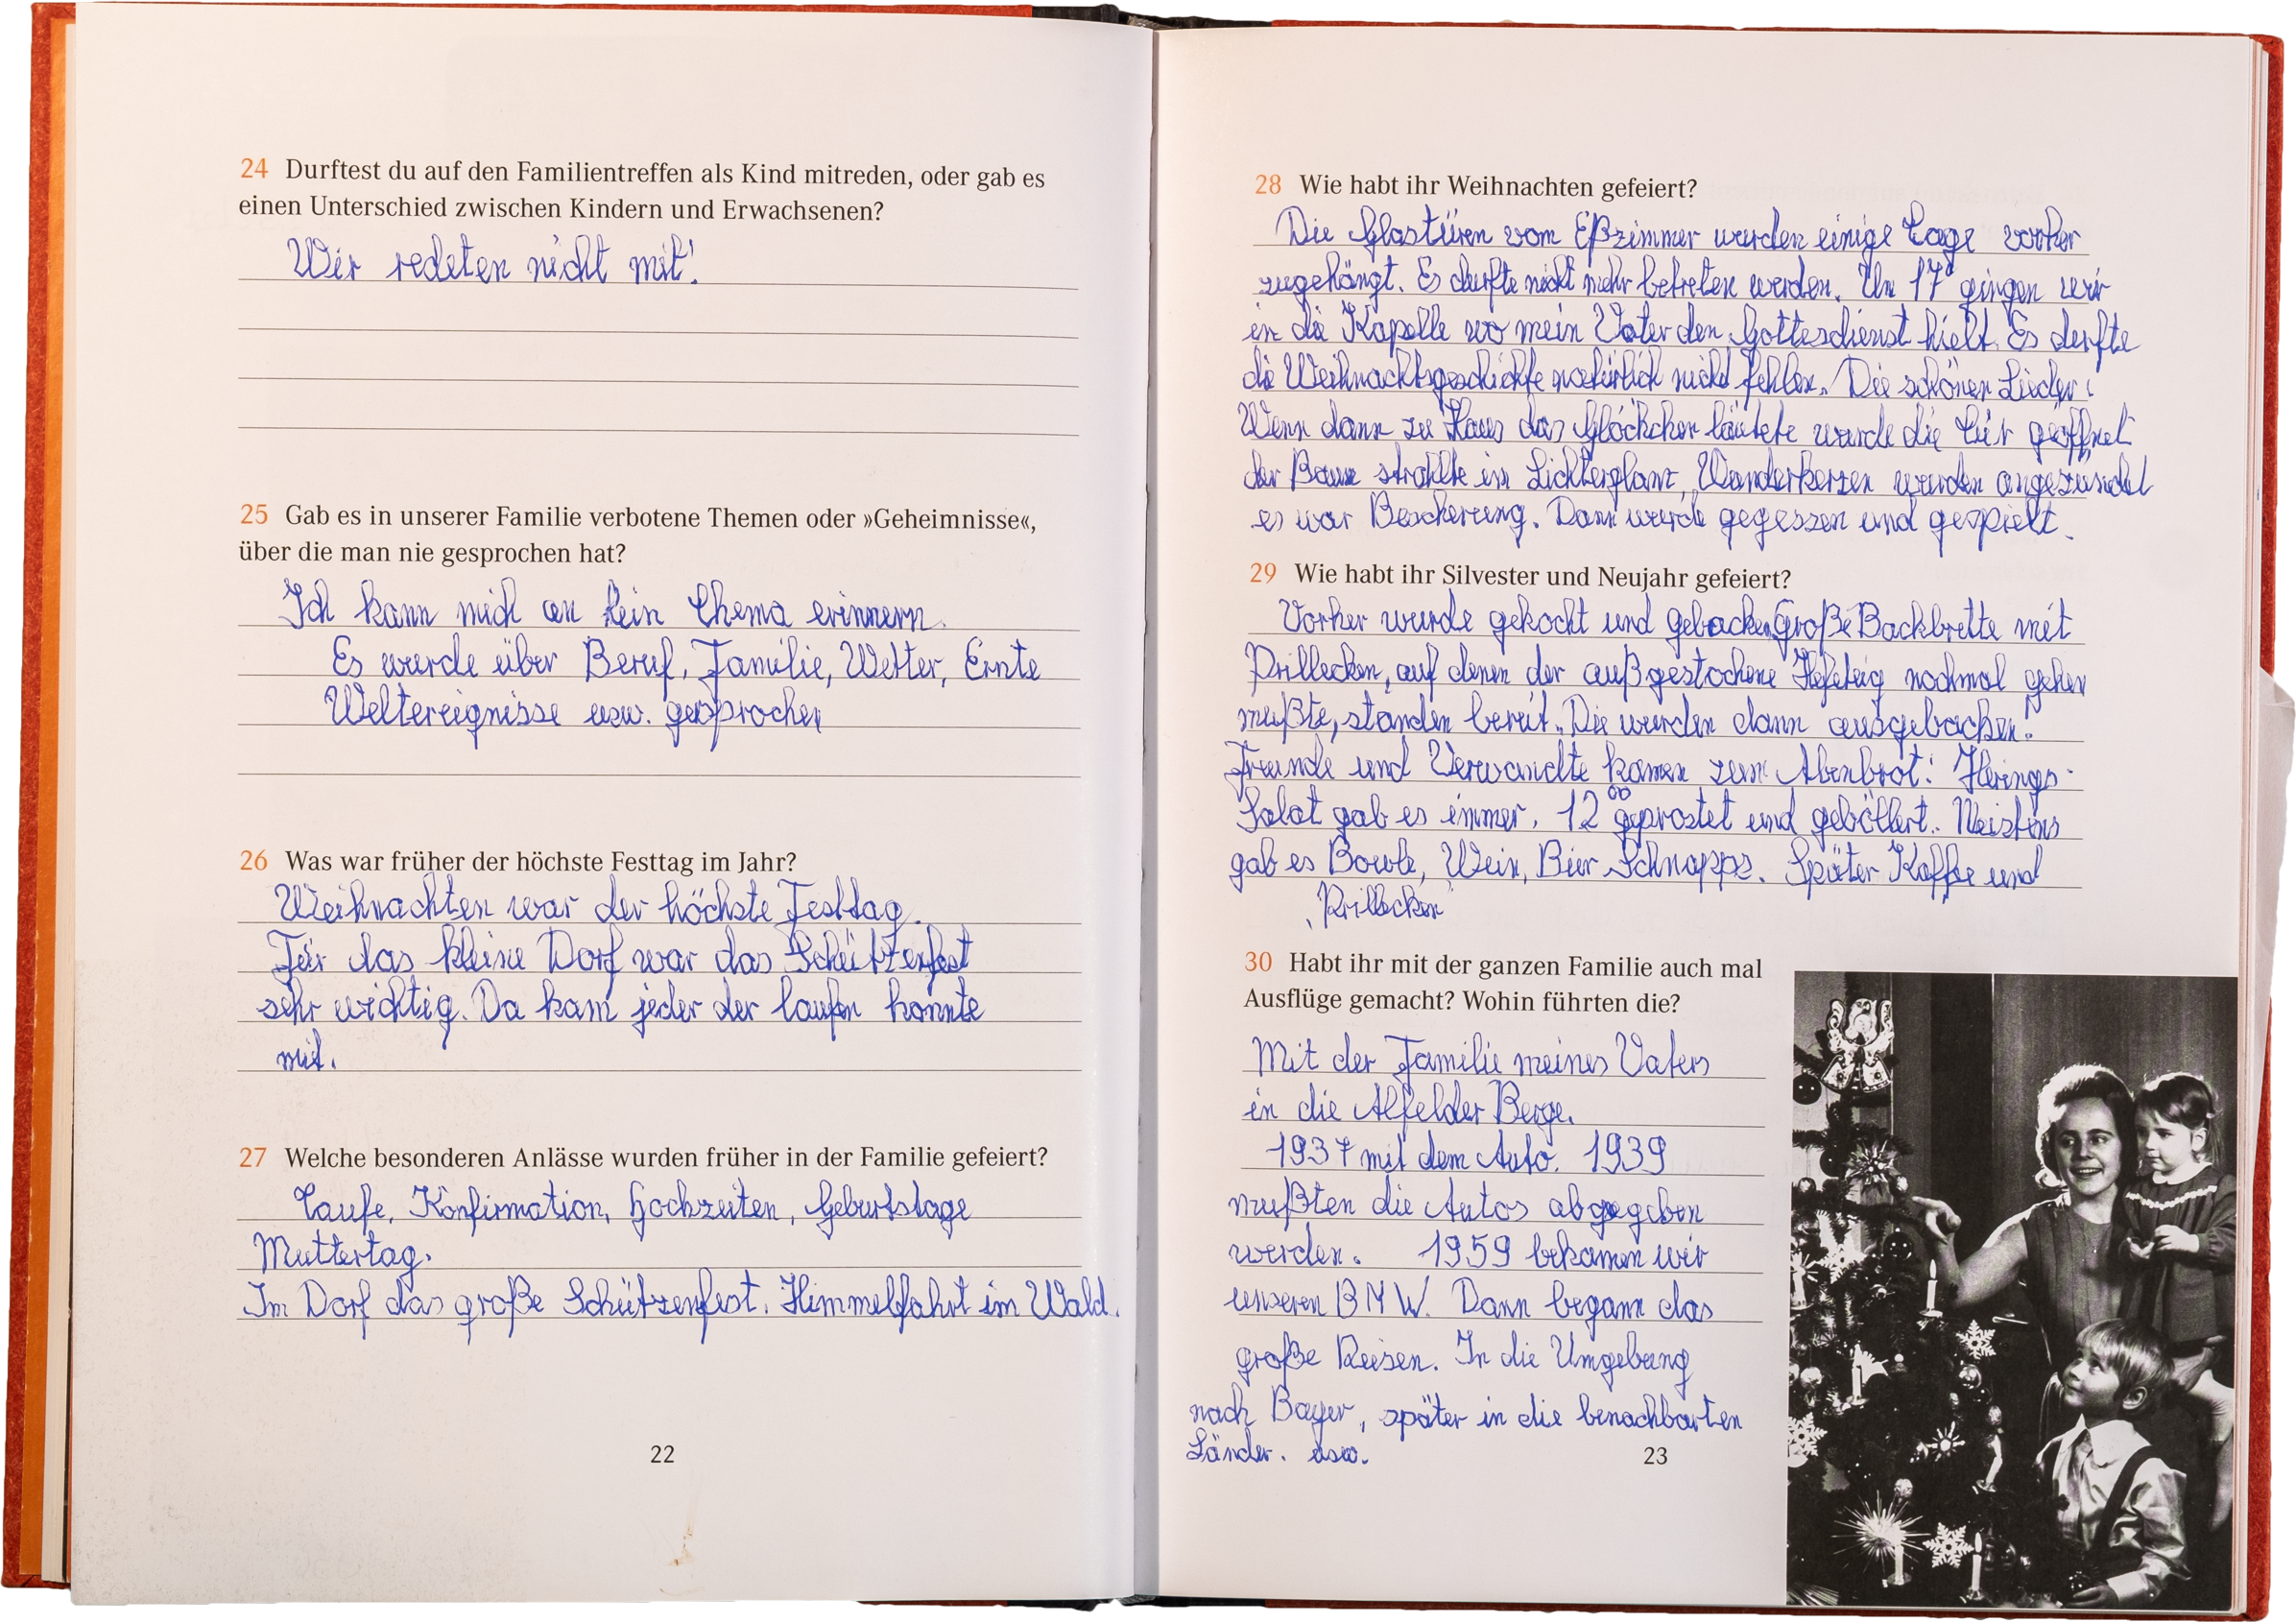 24 Durftest du auf den Familientreffen als Kind mitreden, oder gab es
einen Unterschied zwischen Kindern und Erwachsenen?
Wir redeten nicht mit!
25 Gab es in unserer Familie verbotene Themen oder »Geheimnisse«,
über die man nie gesprochen hat?
Ich kann mich an kein Thema erinnern.
Es wurde über Beruf, Familie, Wetter, Ernte
Weltereignisse usw. gesprochen
26 Was war früher der höchste Festtag im Jahr?
Weihnachten war der höchste Festtag.
Für das kleine Dorf war das Schützenfest
sehr wichtig. Da kam jeder der laufen konnte
mit.
27 Welche besonderen Anlässe wurden früher in der Familie gefeiert?
Taufe, Konfirmation, Hochzeiten, Geburtstage
Muttertag.
Im Dorf das große Schützenfest. Himmelfahrt im Wald.
22
28 Wie habt ihr Weihnachten gefeiert?
Die Glastüren vom Eßzimmer wurden einige Tage vorher
zugehängt. Es durfte nicht mehr betreten werden. Um 17° gingen wir
in die Kapelle wo mein Vater den Gottesdienst hielt. Es derfte
die Weihnachtsgeschichte natürlich nicht fehlen. Die schönen Lieder!
Wenn dann zu Haus das Glöckchen läutete wurde die Tür geöffnet
der Baum strahlte im Lichterglanz, Wunderkerzen wurden angezündet
es war Bescherung. Dann wurde gegessen und gespielt.
29 Wie habt ihr Silvester und Neujahr gefeiert?
Vorher wurde gekocht und gebacken. Große Backbrette mit
Prillecken, auf denen der außgestochene Hefeteig nochmal gehen
mußte, standen bereit. Die wurden dann ausgebacken.
Freunde und Verwandte kamen zum Abenbrot! Herings-
Salat gab es immer. 12⁰⁰ geprostet und geböllert. Meistens
gab es Bowle, Wein, Bier Schnapps. Später Kaffee und
„Prillecken“
30 Habt ihr mit der ganzen Familie auch mal
Ausflüge gemacht? Wohin führten die?
Mit der Familie meines Vaters
in die Alfelder Berge.
1937 mit dem Auto. 1939
mußten die Autos abgegeben
werden. 1959 bekamen wir
unseren BMW. Dann begann das
große Reisen. In die Umgebung
nach Bayer, später in die benachbarten
Länder. usw.
23